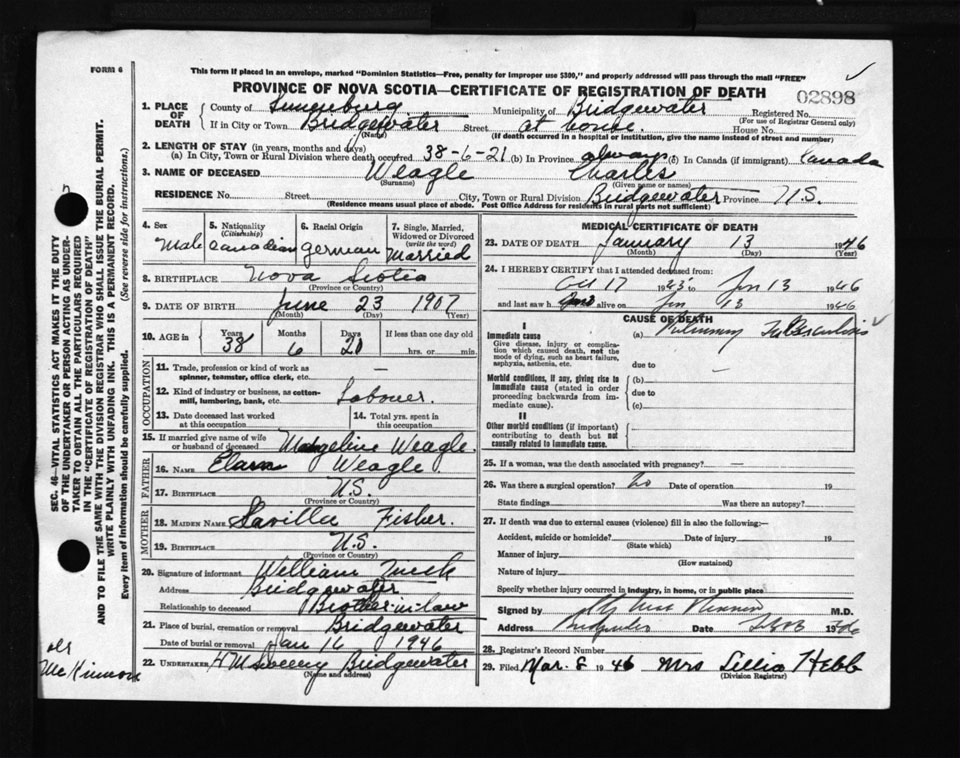 FORM 6
This form if placed in an envelope, marked "Dominion Statistics—Free, penalty for improper use $300," and properly addressed will pass through the mail "FREE"
PROVINCE OF NOVA SCOTIA—CERTIFICATE OF REGISTRATION OF DEATH
02898
1. PLACE OF DEATH
County of Lunenburg Municipality of Bridgewater Registered No.
(For use of Registrar General only)
If in City or Town Bridgewater Street at home House No.
(Name)
(If death occurred in a hospital or institution, give the name instead of street and number)
2. LENGTH OF STAY (in years, months and days)
(a) In City, Town or Rural Division where death occurred 38-6-21 (b) In Province always (c) In Canada (if immigrant) Canada
3. NAME OF DECEASED Weagle Charles
(Surname) (Given name or names)
RESIDENCE No. Street City, Town or Rural Division Bridgewater Province N.S.
(Residence means usual place of abode. Post Office Address for residents in rural parts not sufficient)
4. Sex Male
5. Nationality (Citizenship) Canadian
6. Racial Origin German
7. Single, Married, Widowed or Divorced (write the word) Married
8. BIRTHPLACE Nova Scotia
(Province or Country)
9. DATE OF BIRTH June 23 1907
(Month) (Day) (Year)
10. AGE in Years 38 Months 6 Days 20 If less than one day old
hrs. or min.
OCCUPATION
11. Trade, profession or kind of work as spinner, teamster, office clerk, etc. —
12. Kind of industry or business, as cotton-mill, lumbering, bank, etc. Labouer.
13. Date deceased last worked at this occupation
14. Total yrs. spent in this occupation
15. If married give name of wife or husband of deceased Weagle.
FATHER
16. NAME Weagle
17. BIRTHPLACE N.S.
(Province or Country)
MOTHER
18. MAIDEN NAME Savilla Fisher.
19. BIRTHPLACE N.S.
(Province or Country)
20. Signature of informant William
Address Bridgewater
Relationship to deceased Brother-in-law
21. Place of burial, cremation or removal Bridgewater
Date of burial or removal Jan 16 1946
22. UNDERTAKER Bridgewater
(Name and address)
MEDICAL CERTIFICATE OF DEATH
23. DATE OF DEATH January 13 1946
(Month) (Day) (Year)
24. I HEREBY CERTIFY that I attended deceased from:
Oct 17 1943 to Jan 13 1946
and last saw h alive on Jan 13 1946
CAUSE OF DEATH
I
Immediate cause (a) Pulmonary Tuberculosis
Give disease, injury or complication which caused death, not the mode of dying, such as heart failure, asphyxia, asthenia, etc.
due to
Morbid conditions, if any, giving rise to immediate cause (stated in order proceeding backwards from immediate cause).
(b) —
due to
(c)
II
Other morbid conditions (if important) contributing to death but not causally related to immediate cause.
25. If a woman, was the death associated with pregnancy? —
26. Was there a surgical operation? no Date of operation 19
State findings Was there an autopsy?
27. If death was due to external causes (violence) fill in also the following:—
Accident, suicide or homicide? Date of injury 19
(State which)
Manner of injury
(How sustained)
Nature of injury
Specify whether injury occurred in industry, in home, or in public place
Signed by M.D.
Address Bridgewater Date
28. Registrar's Record Number
29. Filed Mar. 8 1946 Mrs Lillia Hebb
(Division Registrar)
SEC. 46—VITAL STATISTICS ACT MAKES IT THE DUTY OF THE UNDERTAKER OR PERSON ACTING AS UNDERTAKER TO OBTAIN ALL THE PARTICULARS REQUIRED IN THE "CERTIFICATE OF REGISTRATION OF DEATH" AND TO FILE THE SAME WITH THE DIVISION REGISTRAR WHO SHALL ISSUE THE BURIAL PERMIT.
WRITE PLAINLY WITH UNFADING INK. THIS IS A PERMANENT RECORD.
Every item of information should be carefully supplied. (See reverse side for instructions.)
McKinnon